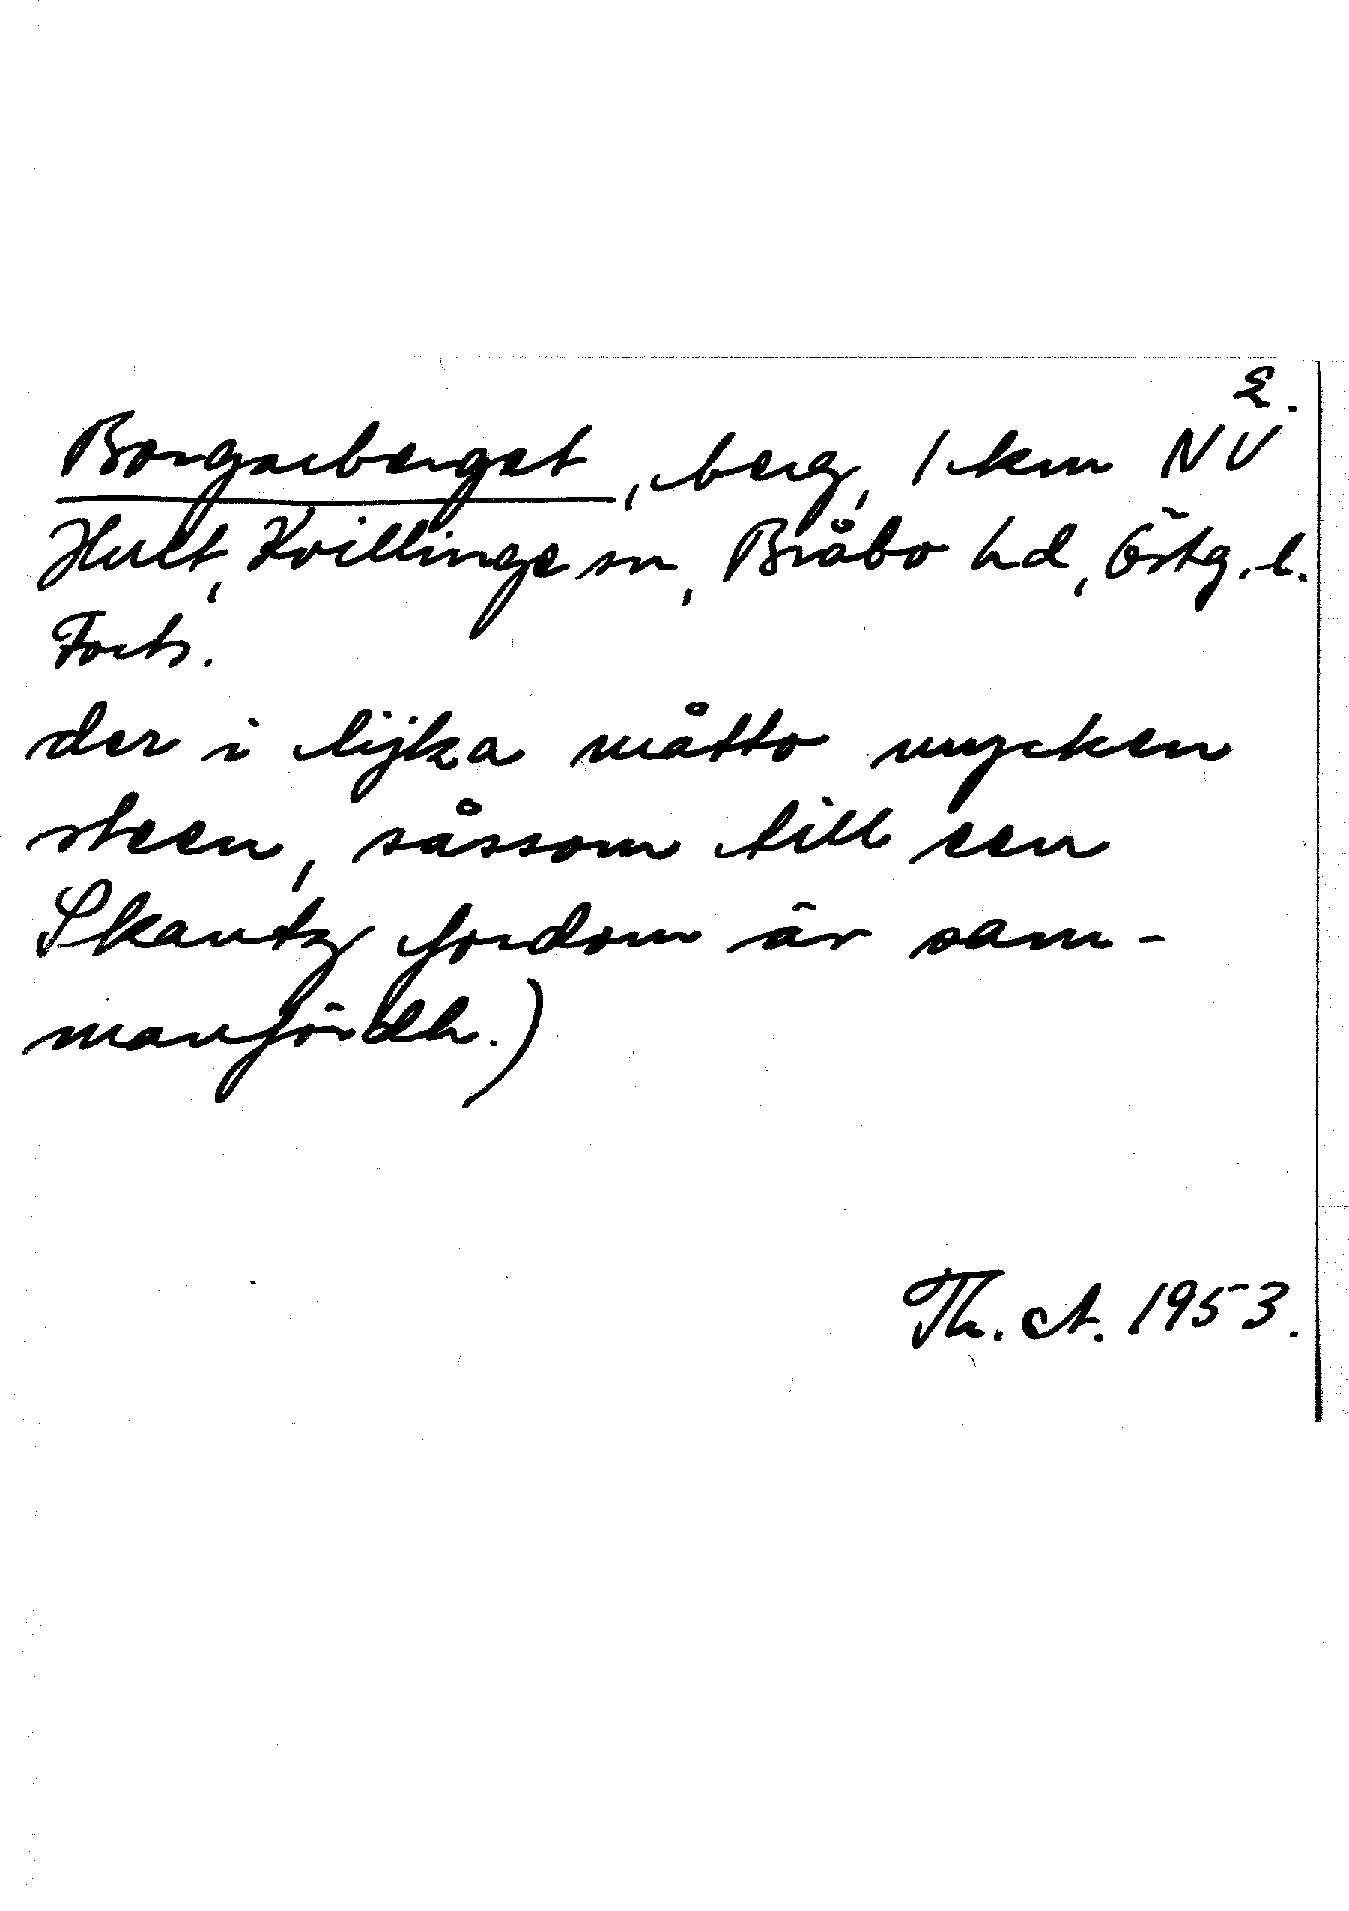 2.
Borgarberget, berg, 1 km NV
Hult, Kvillinge sn, Bråbo hd, Östg. l.
Forts.
der i lijka måtto mycken
steen, såssom till een
Skantz fordom är sam-
manfördh.)
Th. A. 1953.